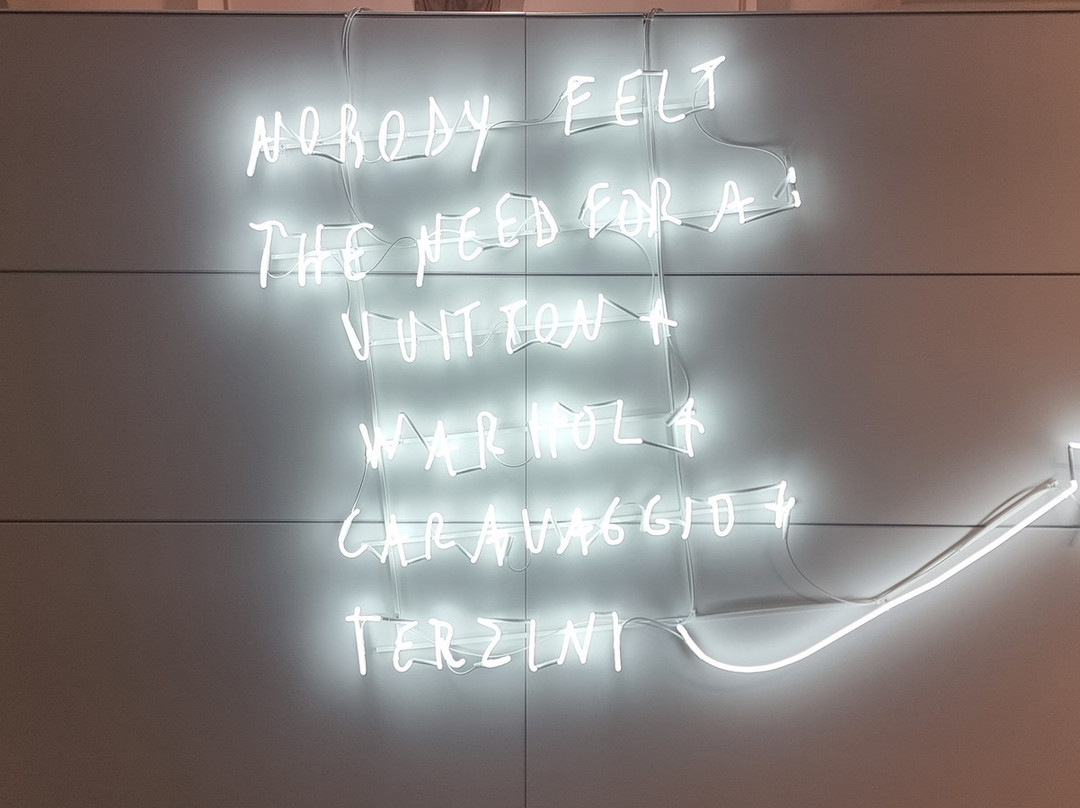 NOBODY FELT
THE NEED FOR A
VUITTON +
WARHOL +
CARAVAGGIO +
TERZINI